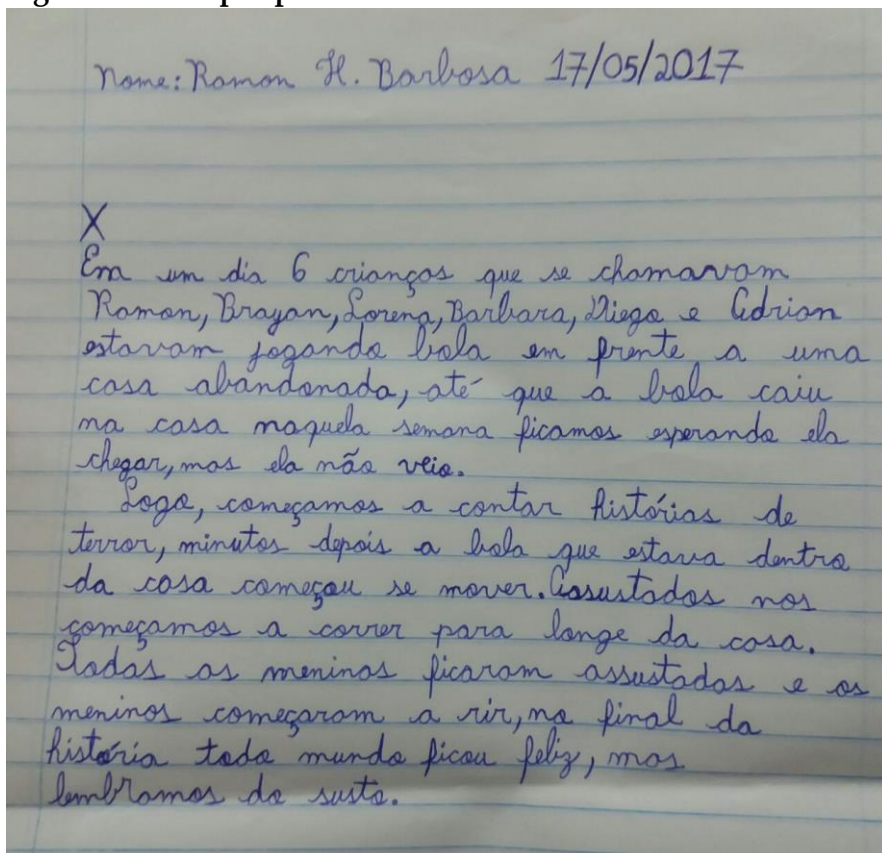 Nome: Ramon H. Barbosa 17/05/2017
X
Em um dia 6 crianças que se chamavam
Ramon, Brayan, Lorena, Barbara, Diego e Adrian
estavam jogando bola em frente a uma
casa abandonada, até que a bola caiu
na casa naquela semana ficamos esperando ela
chegar, mas ela não veio.
Logo, começamos a contar histórias de
terror, minutos depois a bola que estava dentro
da casa começou se mover. Assustados nos
começamos a correr para longe da casa.
Todas as meninas ficaram assustadas e os
meninos começaram a rir, no final da
história todo mundo ficou feliz, mas
lembramos do susto.